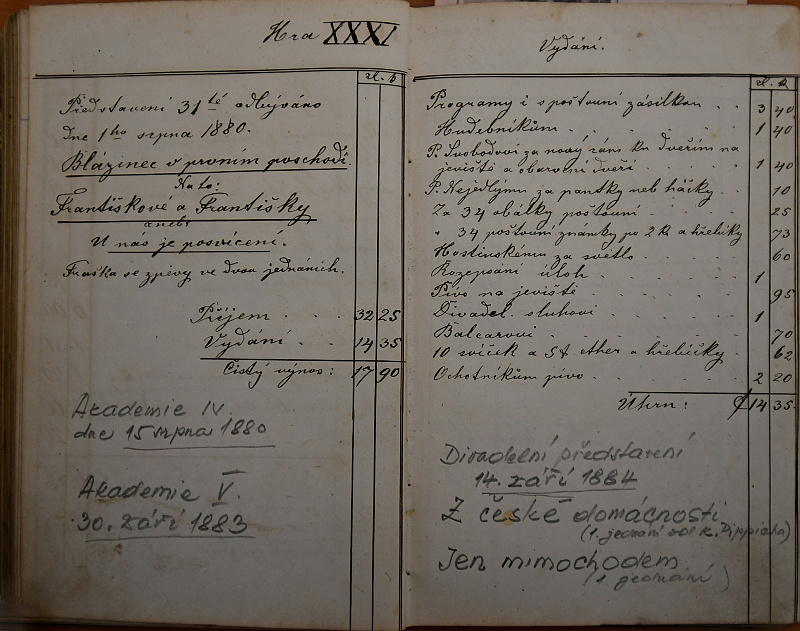 Hra XXXI
zl. k
Představení 31té odbýváno
dne 1ho srpna 1880.
Blázinec v prvním poschodí.
Na to:
Františkové a Františky
aneb:
U nás je posvícení.
Fraška se zpěvy ve dvou jednáních.
Příjem . . . 32 25
Vydání . . 14 35
Čistý výnos: 17 90
Akademie IV.
dne 15 srpna 1880
Akademie V.
30. září 1883
Vydání.
zl. k.
Programy i s poštovní zásilkou . . 3 40
Hudebníkům . . . . . 1 40
P. Svobodovi za nový rám ku dveřím na
jeviště a obarvení dveří . . 1 40
P. Nejedlýmu za pantky neb háčky . 10
Za 34 obálky poštovní . . . 25
" 34 poštovní známky po 2 k a hřebíky 73
Hostinskému za světlo . . . 60
Rozepsání úloh . . . . 1
Pivo na jeviště . . . . 95
Divadel. sluhovi . . . . 1
Balcarovi . . . . . 70
10 svíček a ether a hřebíčky . 62
Ochotníkům pivo . . . . 2 20
Úhrn: 14 35
Divadelní představení
14. září 1884
Z české domácnosti
(1. jednání od K. Pippicha)
Jen mimochodem
(1 jednání)